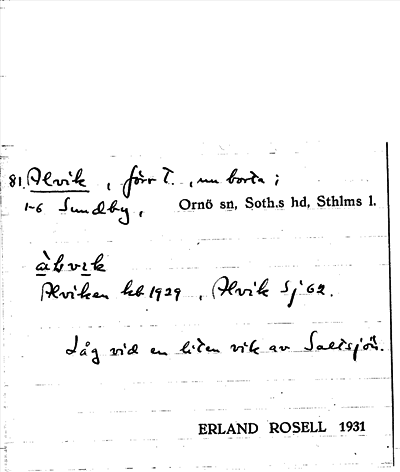 81. Alvik, förr T., nu borta;
1-6 Sundby, Ornö sn, Soth.s hd, Sthlms l.
àlvik
Alviken kb 1929, Alvik Sj 62.
Låg vid en liten vik av Saltsjön.
ERLAND ROSELL 1931